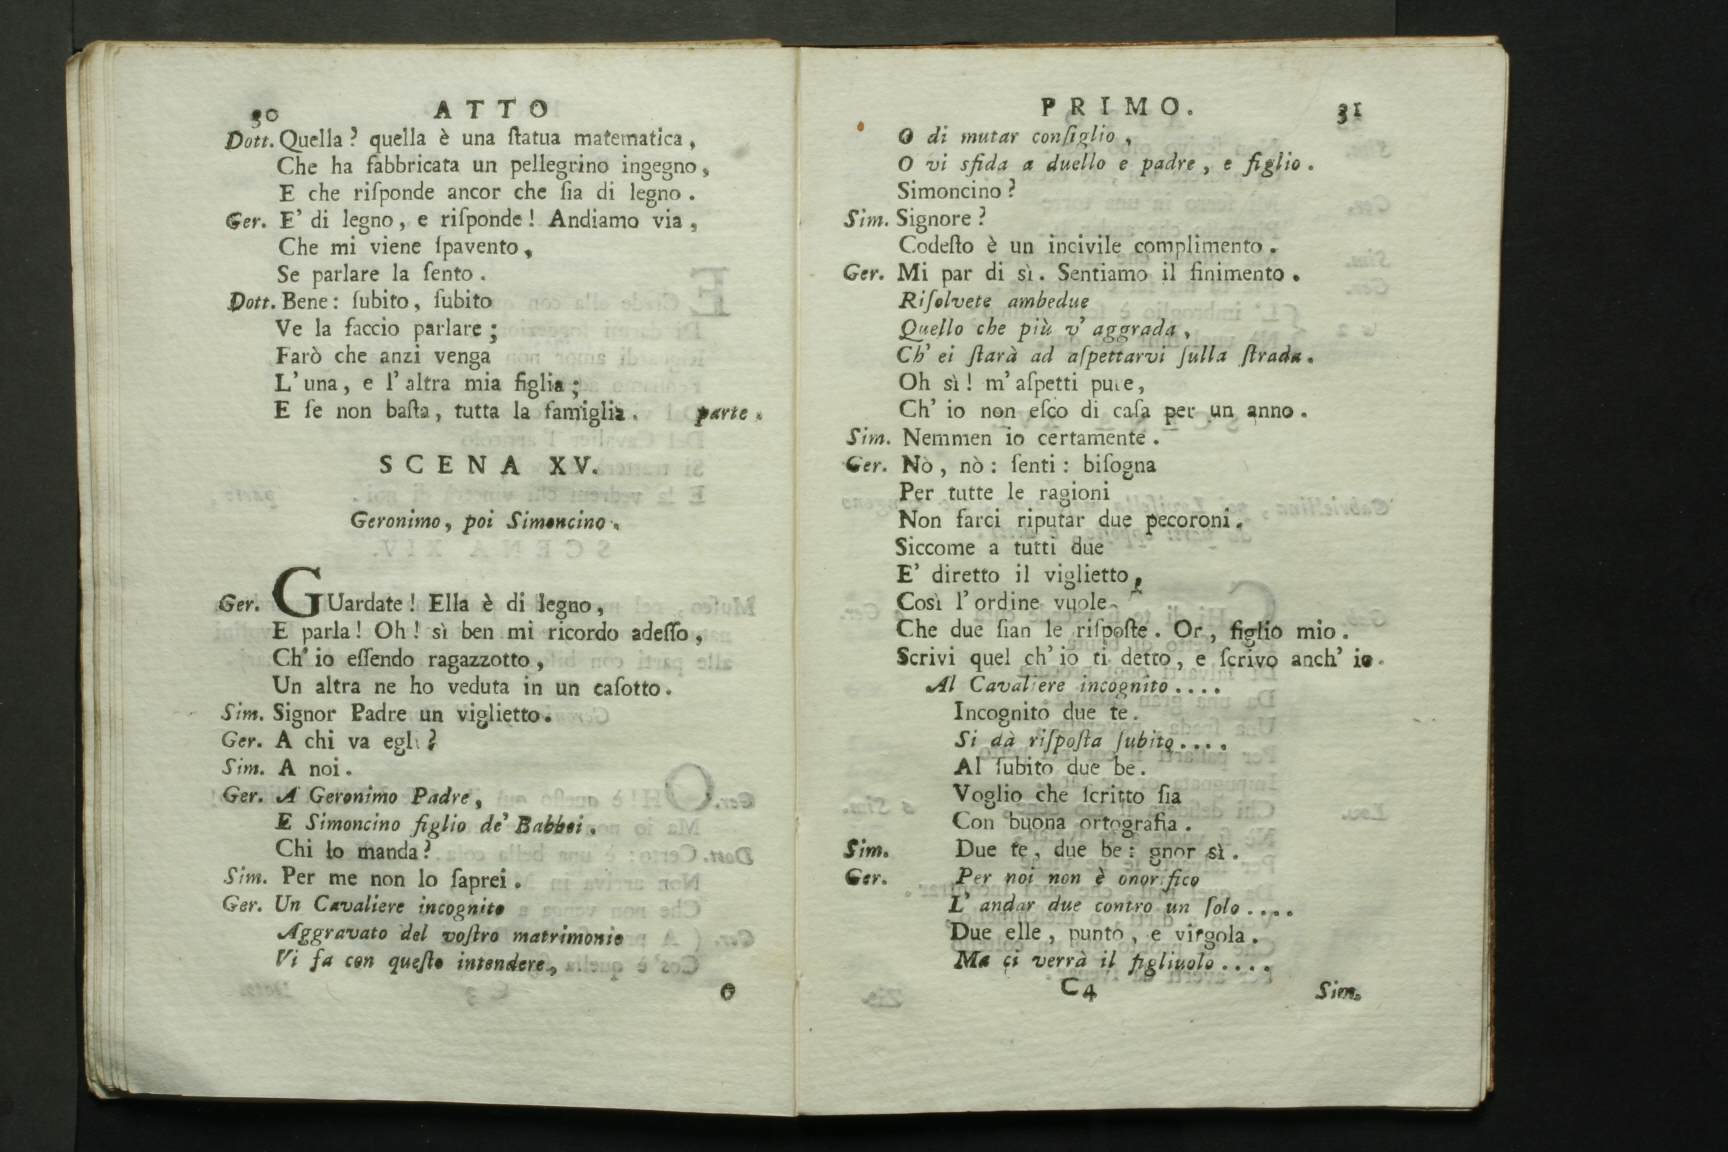 30 ATTO
Dott. Quella? quella è una ſtatua matematica,
Che ha fabbricata un pellegrino ingegno,
E che riſponde ancor che ſia di legno.
Ger. E' di legno, e riſponde! Andiamo via,
Che mi viene ſpavento,
Se parlare la ſento.
Dott. Bene: ſubito, ſubito
Ve la faccio parlare;
Farò che anzi venga
L'una, e l'altra mia figlia;
E ſe non baſta, tutta la famiglia. parte.
SCENA XV.
Geronimo, poi Simoncino.
Ger. GUardate! Ella è di legno,
E parla! Oh! sì ben mi ricordo adeſſo,
Ch' io eſſendo ragazzotto,
Un altra ne ho veduta in un caſotto.
Sim. Signor Padre un viglietto.
Ger. A chi va egli?
Sim. A noi.
Ger. A Geronimo Padre,
E Simoncino figlio de' Babbei.
Chi lo manda?
Sim. Per me non lo ſaprei.
Ger. Un Cavaliere incognito
Aggravato del voſtro matrimonio
Vi fa con queſto intendere,
O
PRIMO. 31
O di mutar conſiglio,
O vi sfida a duello e padre, e figlio.
Simoncino?
Sim. Signore?
Codeſto è un incivile complimento.
Ger. Mi par di sì. Sentiamo il finimento.
Riſolvete ambedue
Quello che più v' aggrada,
Ch' ei ſtarà ad aſpettarvi ſulla ſtrada.
Oh sì! m' aſpetti pure,
Ch' io non eſco di caſa per un anno.
Sim. Nemmen io certamente.
Ger. Nò, nò: ſenti: biſogna
Per tutte le ragioni
Non farci riputar due pecoroni.
Siccome a tutti due
E' diretto il viglietto,
Così l'ordine vuole
Che due ſian le riſpoſte. Or, figlio mio.
Scrivi quel ch' io ti detto, e ſcrivo anch' io.
Al Cavaliere incognito....
Incognito due te.
Si dà riſpoſta ſubito....
Al ſubito due be.
Voglio che ſcritto ſia
Con buona ortografia.
Sim. Due te, due be: gnor sì.
Ger. Per noi non è onorifico
L' andar due contro un ſolo....
Due elle, punto, e virgola.
Ma ci verrà il figliuolo....
C4 Sim.